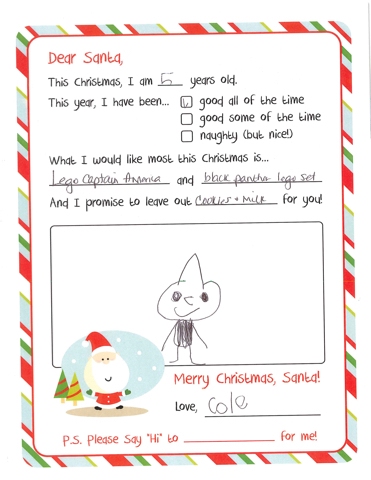 Dear Santa,
This Christmas, I am 5 years old.
This year, I have been... good all of the time
good some of the time
naughty (but nice!)
What I would like most this Christmas is...
Lego Captain America and black panther lego set
And I promise to leave out Cookies + Milk for you!
Merry Christmas, Santa!
Love, Cole
P.S. Please Say "Hi" to for me!